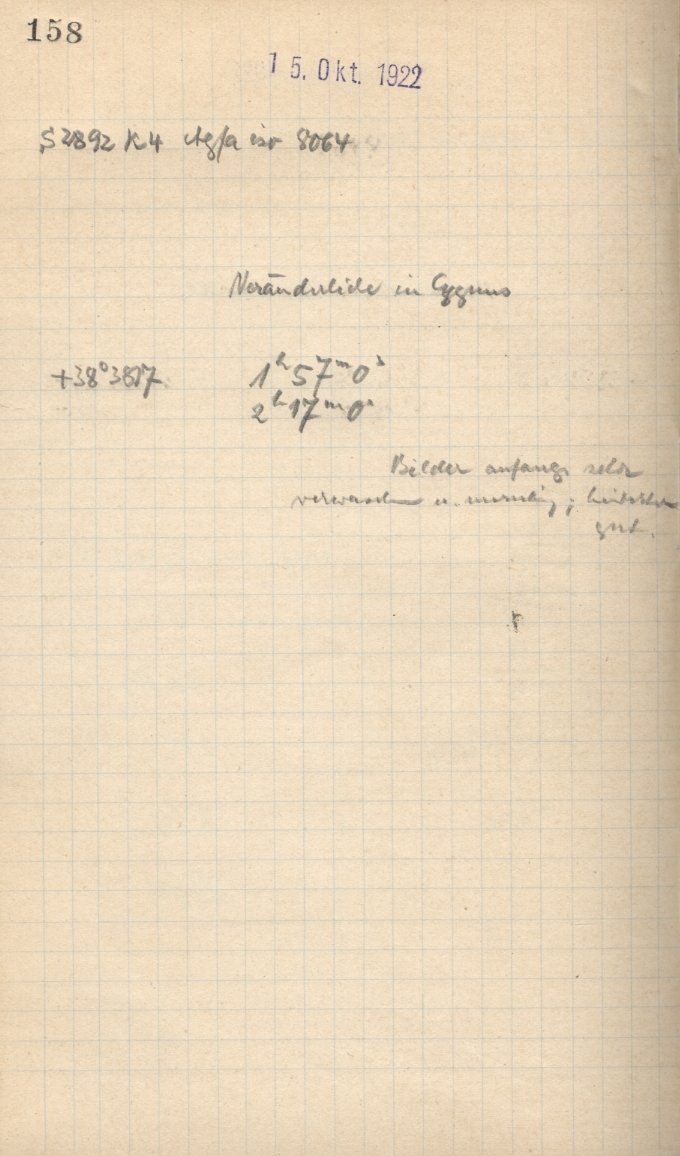 158
15. Okt. 1922
S 2892 K4 Agfa iso 8064
Veränderliche in Cygnus
+38°3817 1ʰ57ᵐ0ˢ
2ʰ17ᵐ0ˢ
Bilder anfangs sehr
verwaschen u. unruhig;
gut.